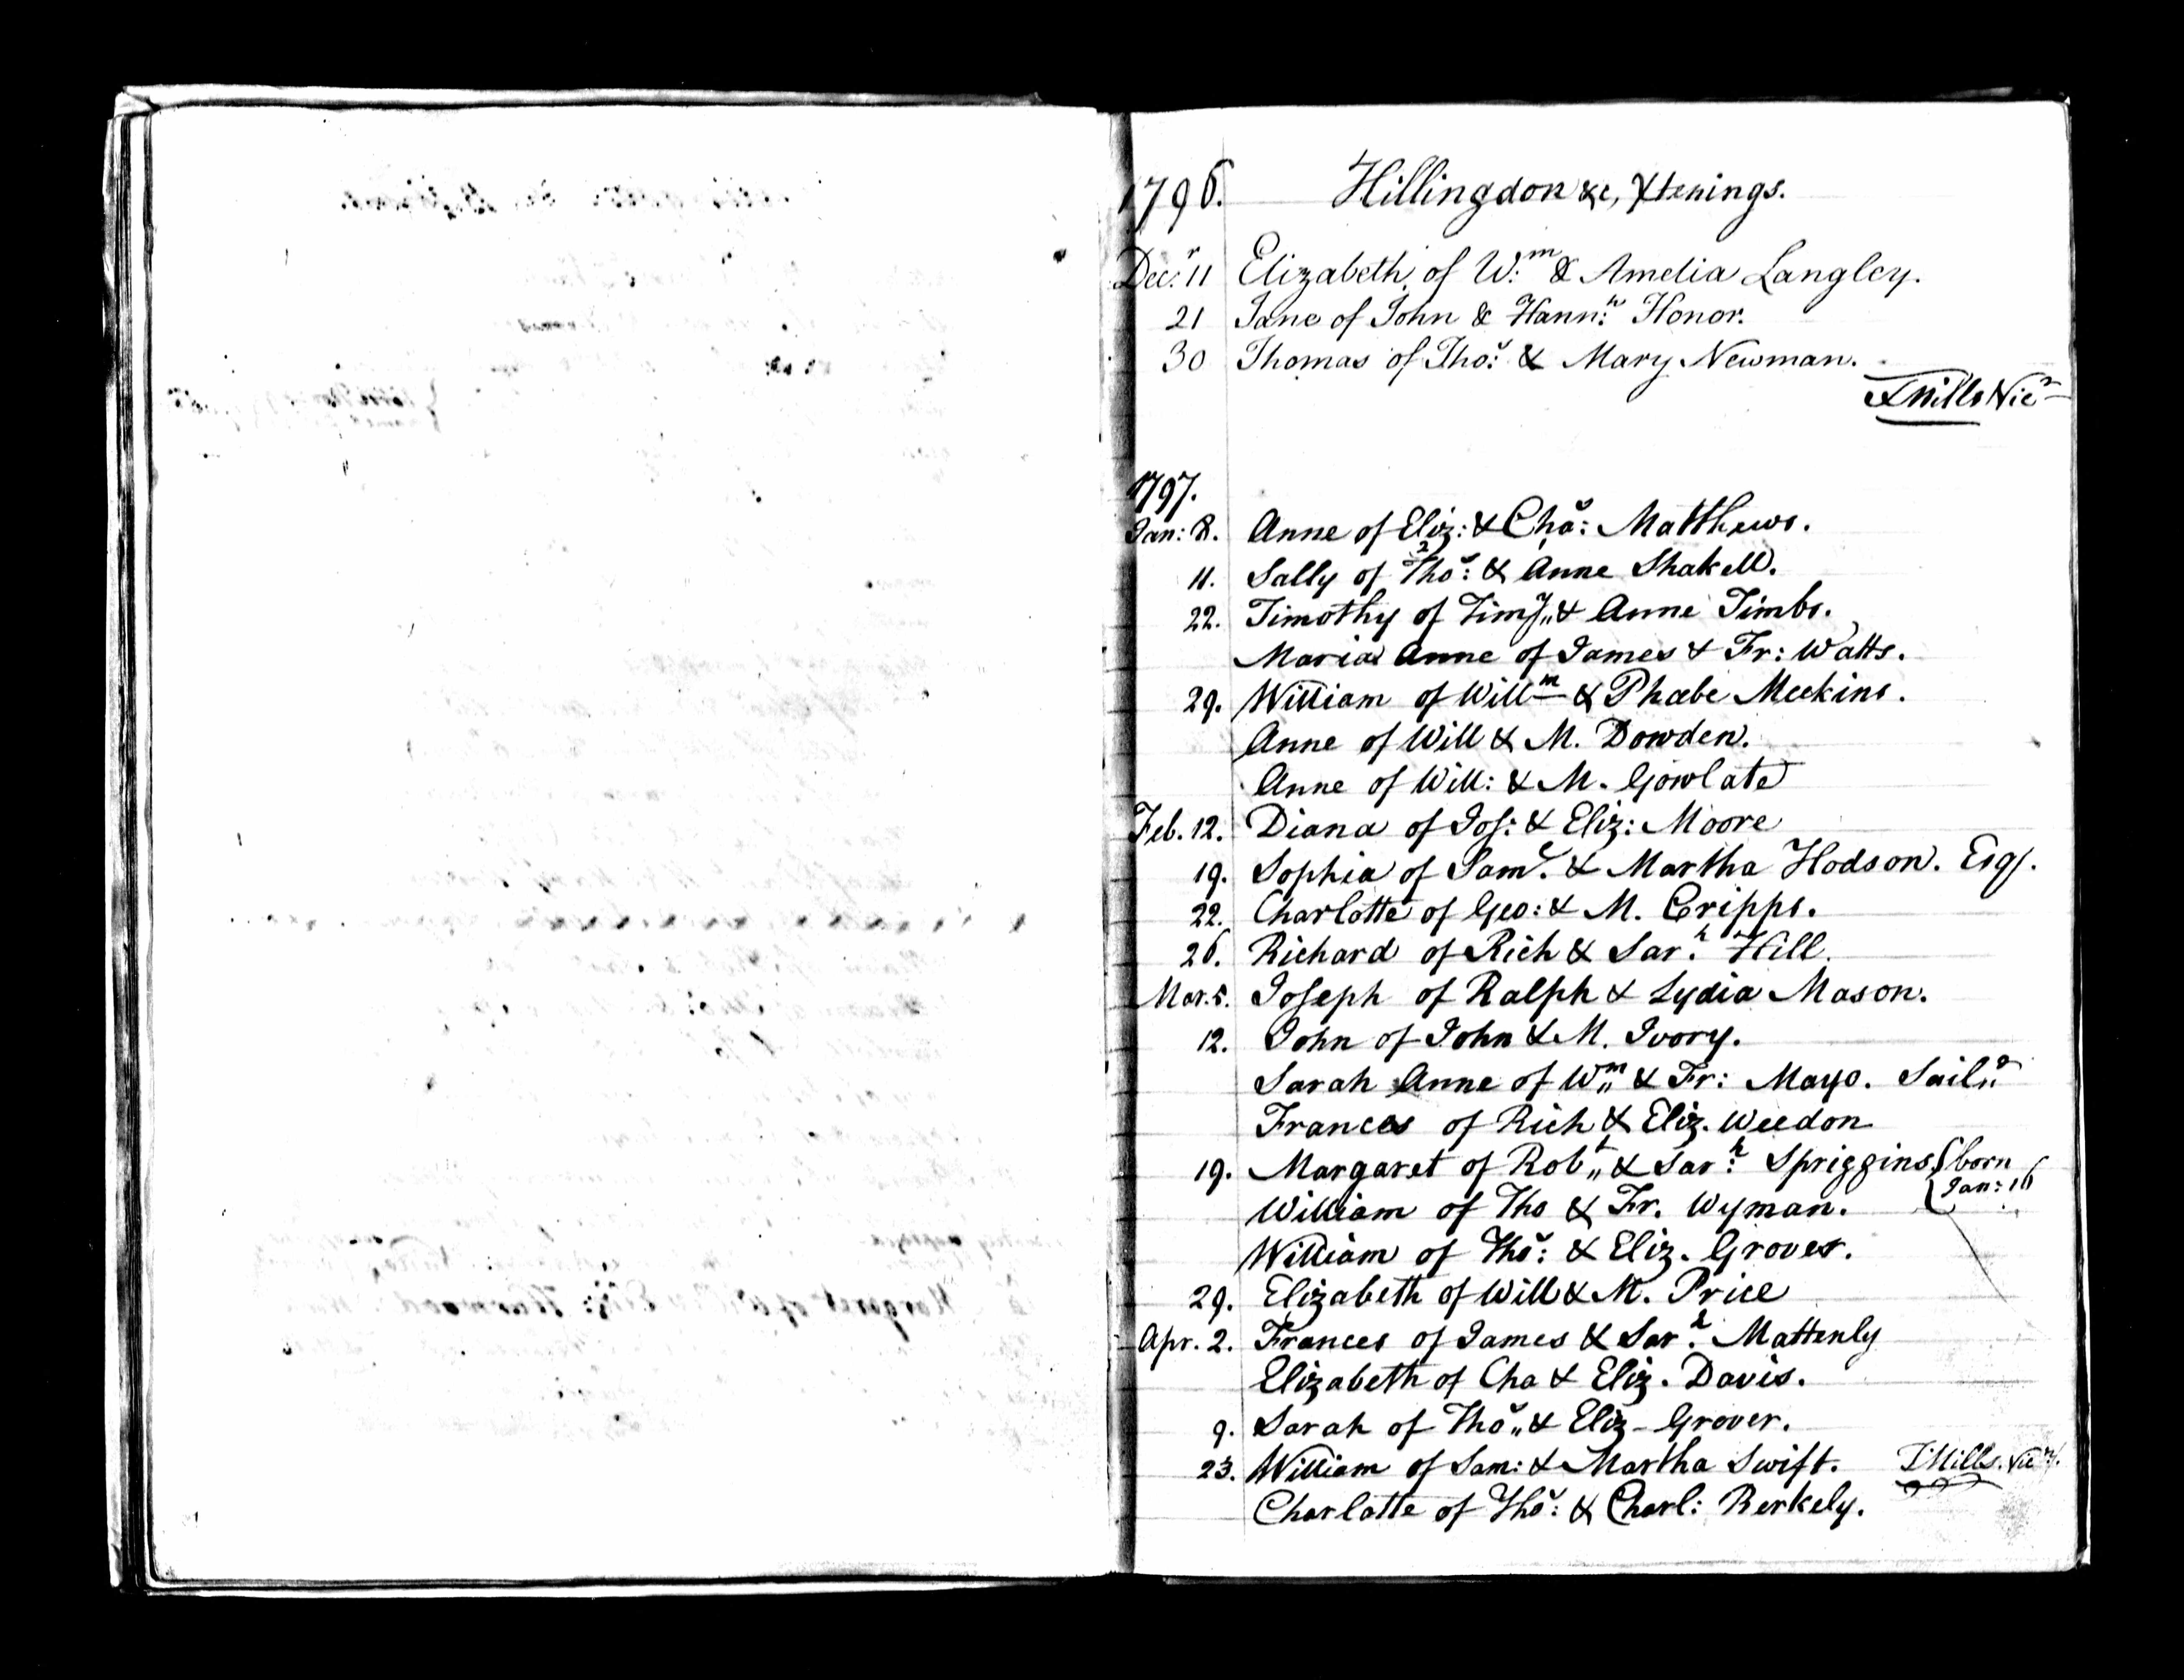 1796. Hillingdon &c, Xtenings.
Decr. 11 Elizabeth, of Wm. & Amelia Langley.
21 Jane of John & Hannh. Honor.
30 Thomas of Thos. & Mary Newman.
Mills Vicr
1797.
Jan: 8. Anne of Eliz: & Chas: Matthews.
11. Sally of Thos: & Anne Shakell.
22. Timothy of Timy,, & Anne Timbs.
Maria Anne of James & Fr: Watts.
29. William of Willm & Phœbe Meekins.
Anne of Will & M. Dowden.
Anne of Will: & M. Gowlate
Feb. 12. Diana of Jos: & Eliz: Moore
19. Sophia of Saml. & Martha Hodson. Esqr.
22. Charlotte of Geo: & M. Cripps.
26. Richard of Rich & Sarh. Hill.
Mar. 5. Joseph of Ralph & Lydia Mason.
12. John of John & M. Ivory.
Sarah Anne of Wm,, & Fr: Mayo.
Frances of Rich & Eliz. Weedon
19. Margaret of Robt,, & Sarh: Spriggins { born
Jan: 16
William of Tho & Fr. Wyman.
William of Thos: & Eliz. Groves.
29. Elizabeth of Will & M. Price
Apr. 2. Frances of James & Sarh. Mattenly
Elizabeth of Cha & Eliz. Davis.
9. Sarah of Thos,, & Eliz - Grover.
23. William of Sam: & Martha Swift. Mills. Vicr.
Charlotte of Thos: & Charl: Berkely.